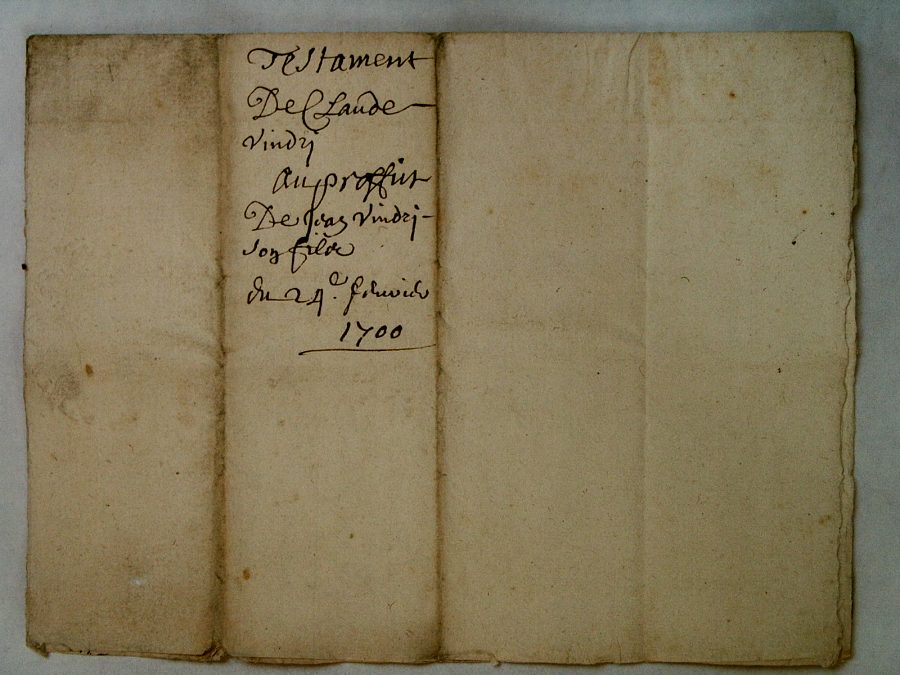 Testament
De Claude
vindrj
Au proffict
De Jean vindrj
son filz
du 24e. febvrier
1700